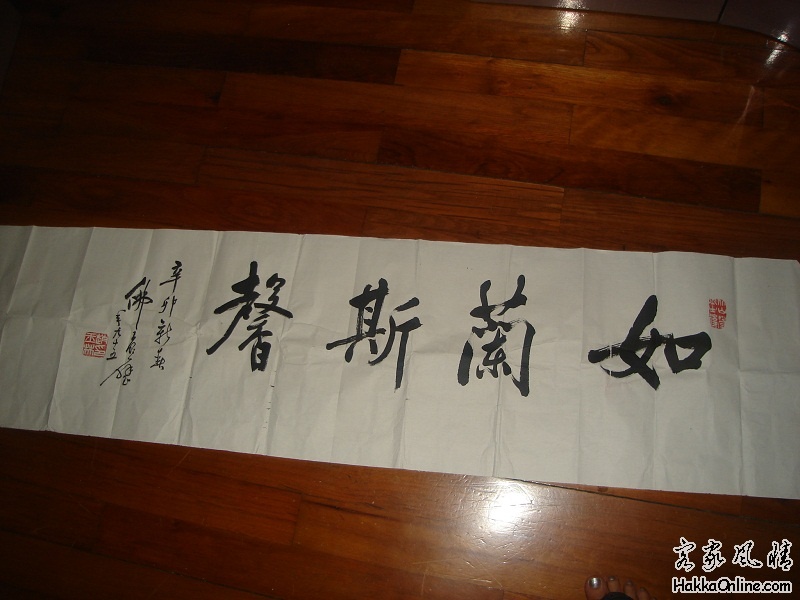 如蘭斯馨
辛卯新春
佛
年九十五
客家風情
HakkaOnline.com